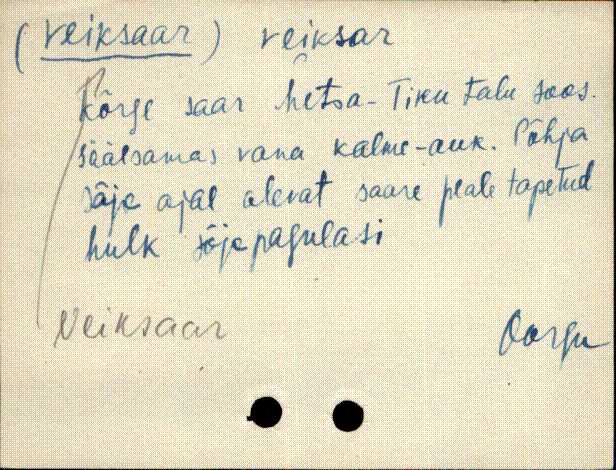 (veiksaar) veiksar
Kõrge saar hetsa-Tiku talu soos.
säälsamas vana kalme-auk. Põhja
sõja ajal olevat saare peale tapetud
hulk sõjapagulasi
Veiksaar
Oorgu